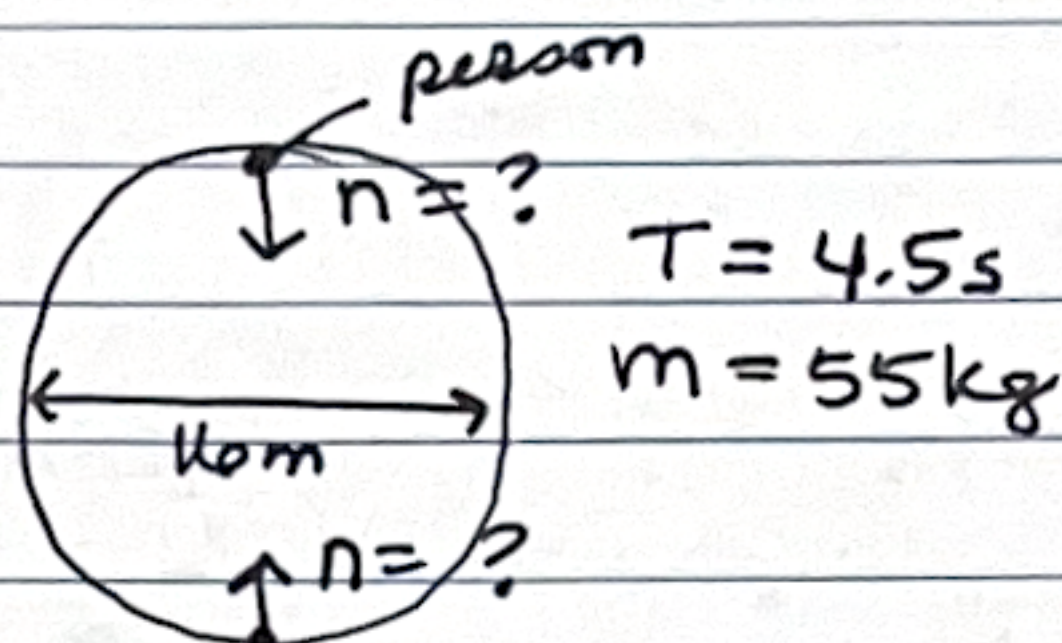 person
n = ?
T = 4.5s
m = 55kg
16m
n = ?